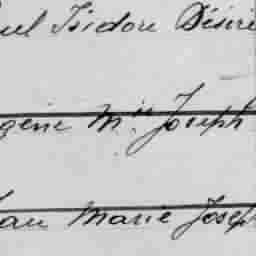 uel Isidore Désiré
gène M.ie Joseph
ean Marie Joseph